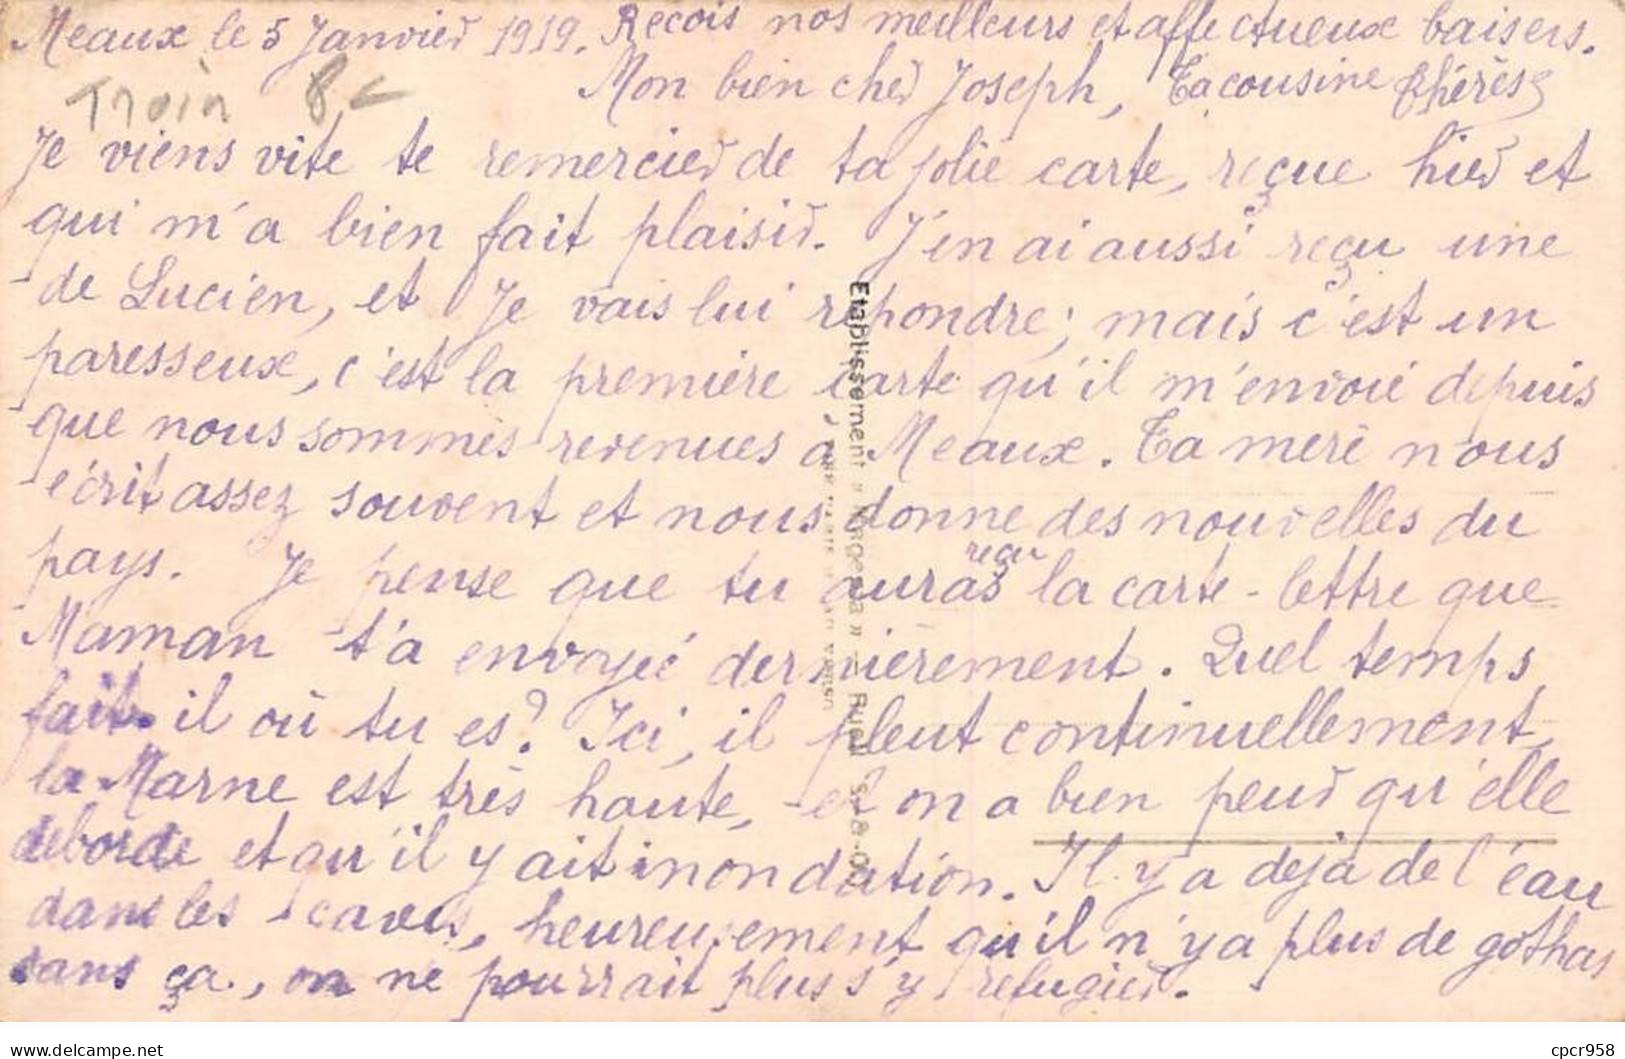 Meaux le 5 Janvier 1919. Recois nos meilleurs et affectueux baisers.
Mon bien cher Joseph, Ta cousine Thérèse
Je viens vite te remercier de ta jolie carte, reçue hier et
qui m'a bien fait plaisir. J'en ai aussi reçu une
de Lucien, et je vais lui répondre; mais c'est un
paresseux, c'est la première carte qu'il m'envoie depuis
que nous sommes revenues à Meaux. Ta mère nous
écrit assez souvent et nous donne des nouvelles du
pays. Je pense que tu auras reçu la carte-lettre que
Maman t'a envoyée dernièrement. Quel temps
fait-il où tu es? Ici, il pleut continuellement,
la Marne est très haute, et on a bien peur qu'elle
déborde et qu'il y ait inondation. Il y a déjà de l'eau
dans les caves, heureusement qu'il n'y a plus de gothas
sans ça, on ne pourrait plus s'y réfugier.
Etablissement
cpcr958